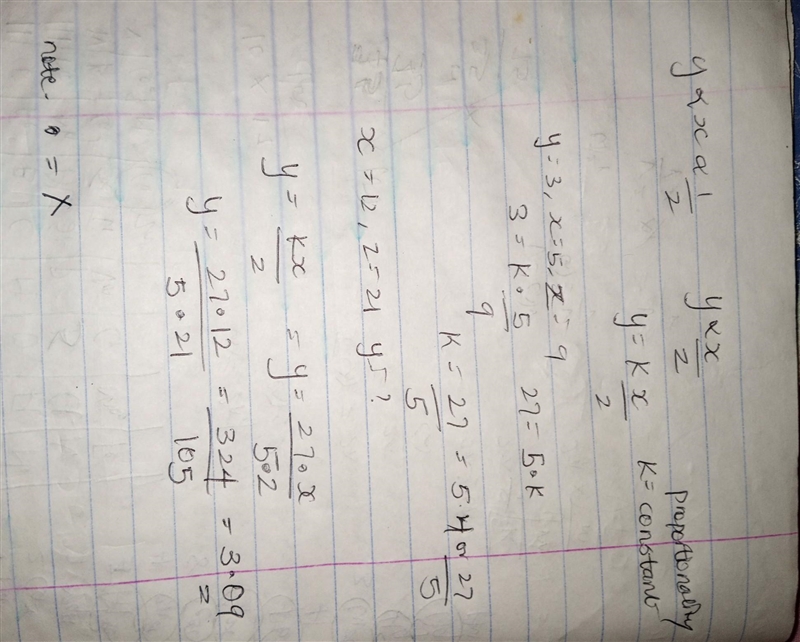 y ∝ x ∝ 1/z    y ∝ x/z    proportionality
y = k x/z    k = constant
y = 3, x = 5, z = 9
3 = k • 5/9    27 = 5 • k
k = 27/5 = 5.4 or 27/5
x = 12, z = 21 y = ?
y = kx/z = y = 27 • x/5 • z
y = 27 • 12/5 • 21 = 324/105 = 3.09
note. • = X